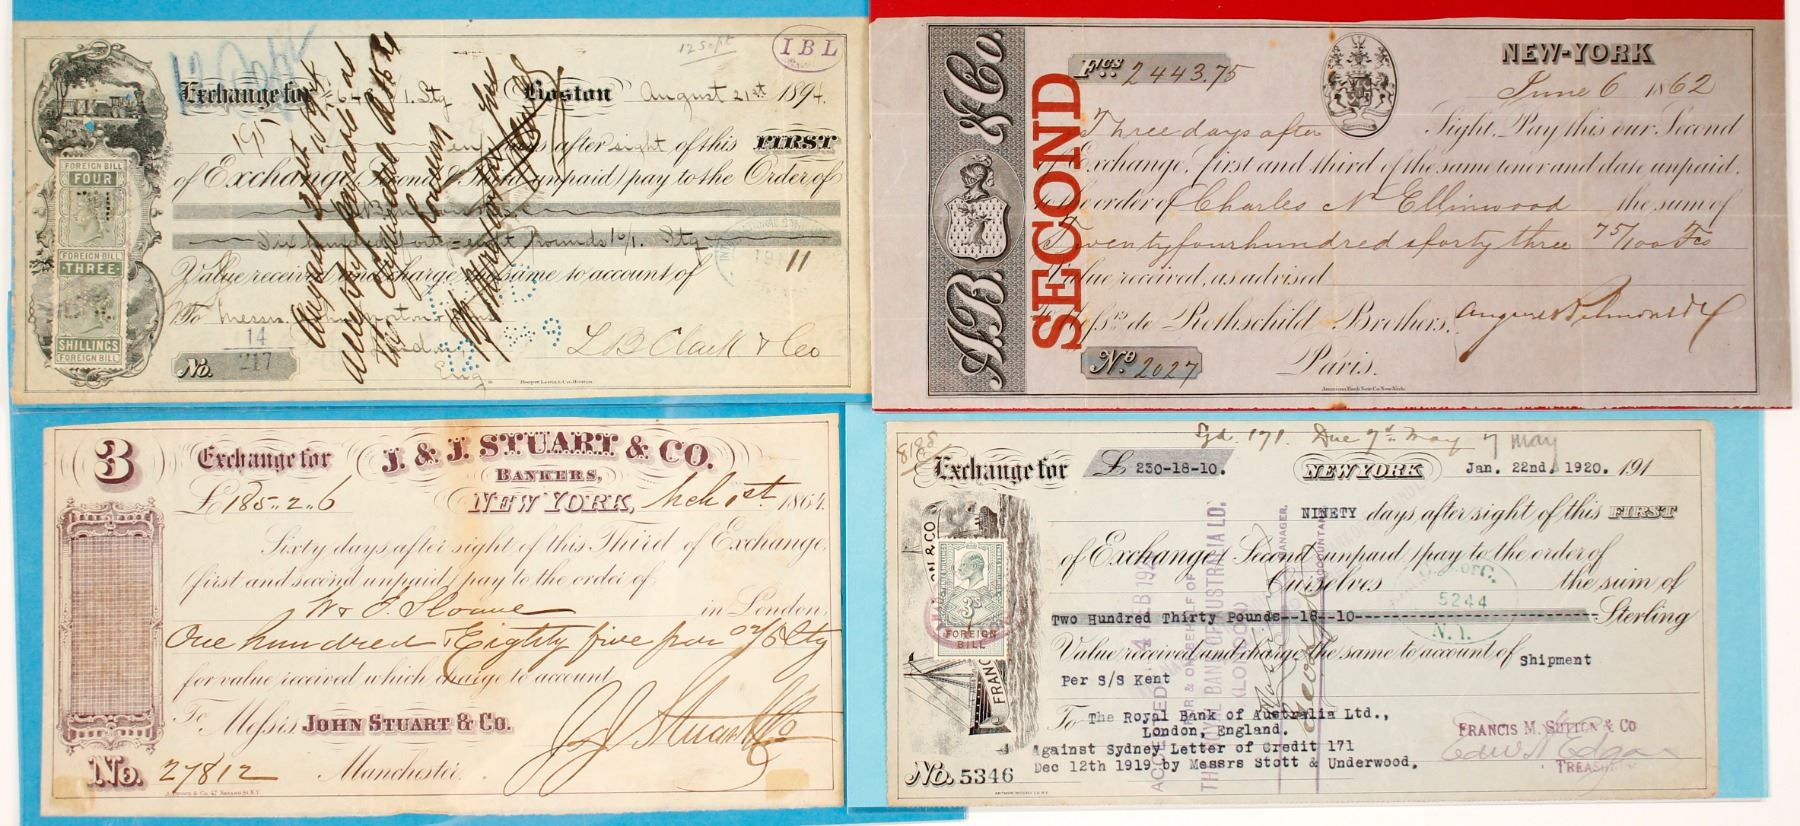 12 Sept
I B L
Exchange for
Boston August 21st 1894.
days after sight of this FIRST
of Exchange (Second & Third unpaid) pay to the Order of
Six hundred forty-eight pounds 10/1. Stg
Value received and charge the same to account of
To Messrs.
London
Eng
14
No. 217
L B Clark & Co
FOREIGN BILL
FOUR
FOREIGN BILL
THREE
SHILLINGS
FOREIGN BILL
11
A.B. & Co.
SECOND
Fics 2443.75
NEW-YORK
June 6 1862
Three days after Sight, Pay this our Second
of Exchange, first and third of the same tenor and date unpaid,
to the order of Charles N Ellinwood the sum of
Twentyfourhundred & forty three 75/100 Fcs
Value received, as advised
To Messrs. de Rothschild Brothers,
Paris.
No. 2027
American Bank Note Co. New-York.
3
Exchange for
J. & J. STUART & CO.
BANKERS,
£185..2..6
NEW YORK, Mch 1st 1864
Sixty days after sight of this Third of Exchange,
(first and second unpaid) pay to the order of
W & J. Sloane in London,
One hundred & Eighty five pds 02/6 Stg
for value received which charge to account
To Messrs. JOHN STUART & CO.
J J Stuart & Co
No. 27812 Manchester.
8188
Syd. 171. Due 7th May 7 May
Exchange for £ 230-18-10.
NEW YORK Jan. 22nd. 1920. 191
NINETY days after sight of this FIRST
of Exchange (Second unpaid) pay to the order of
Ourselves the sum of
Two Hundred Thirty Pounds--18--10 Sterling
Value received and charge the same to account of Shipment
Per S/S Kent
To The Royal Bank of Australia Ltd.,
London, England.
Against Sydney Letter of Credit 171
Dec 12th 1919 by Messrs Stott & Underwood.
No. 5346
FRANCIS M. SUTTON & CO
TREASURER
5244
N.Y.
3s
FOREIGN
BILL
ACCEPTED
THE ROYAL BANK OF AUSTRALIA LD.
(LONDON)
MANAGER.
ACCOUNTANT